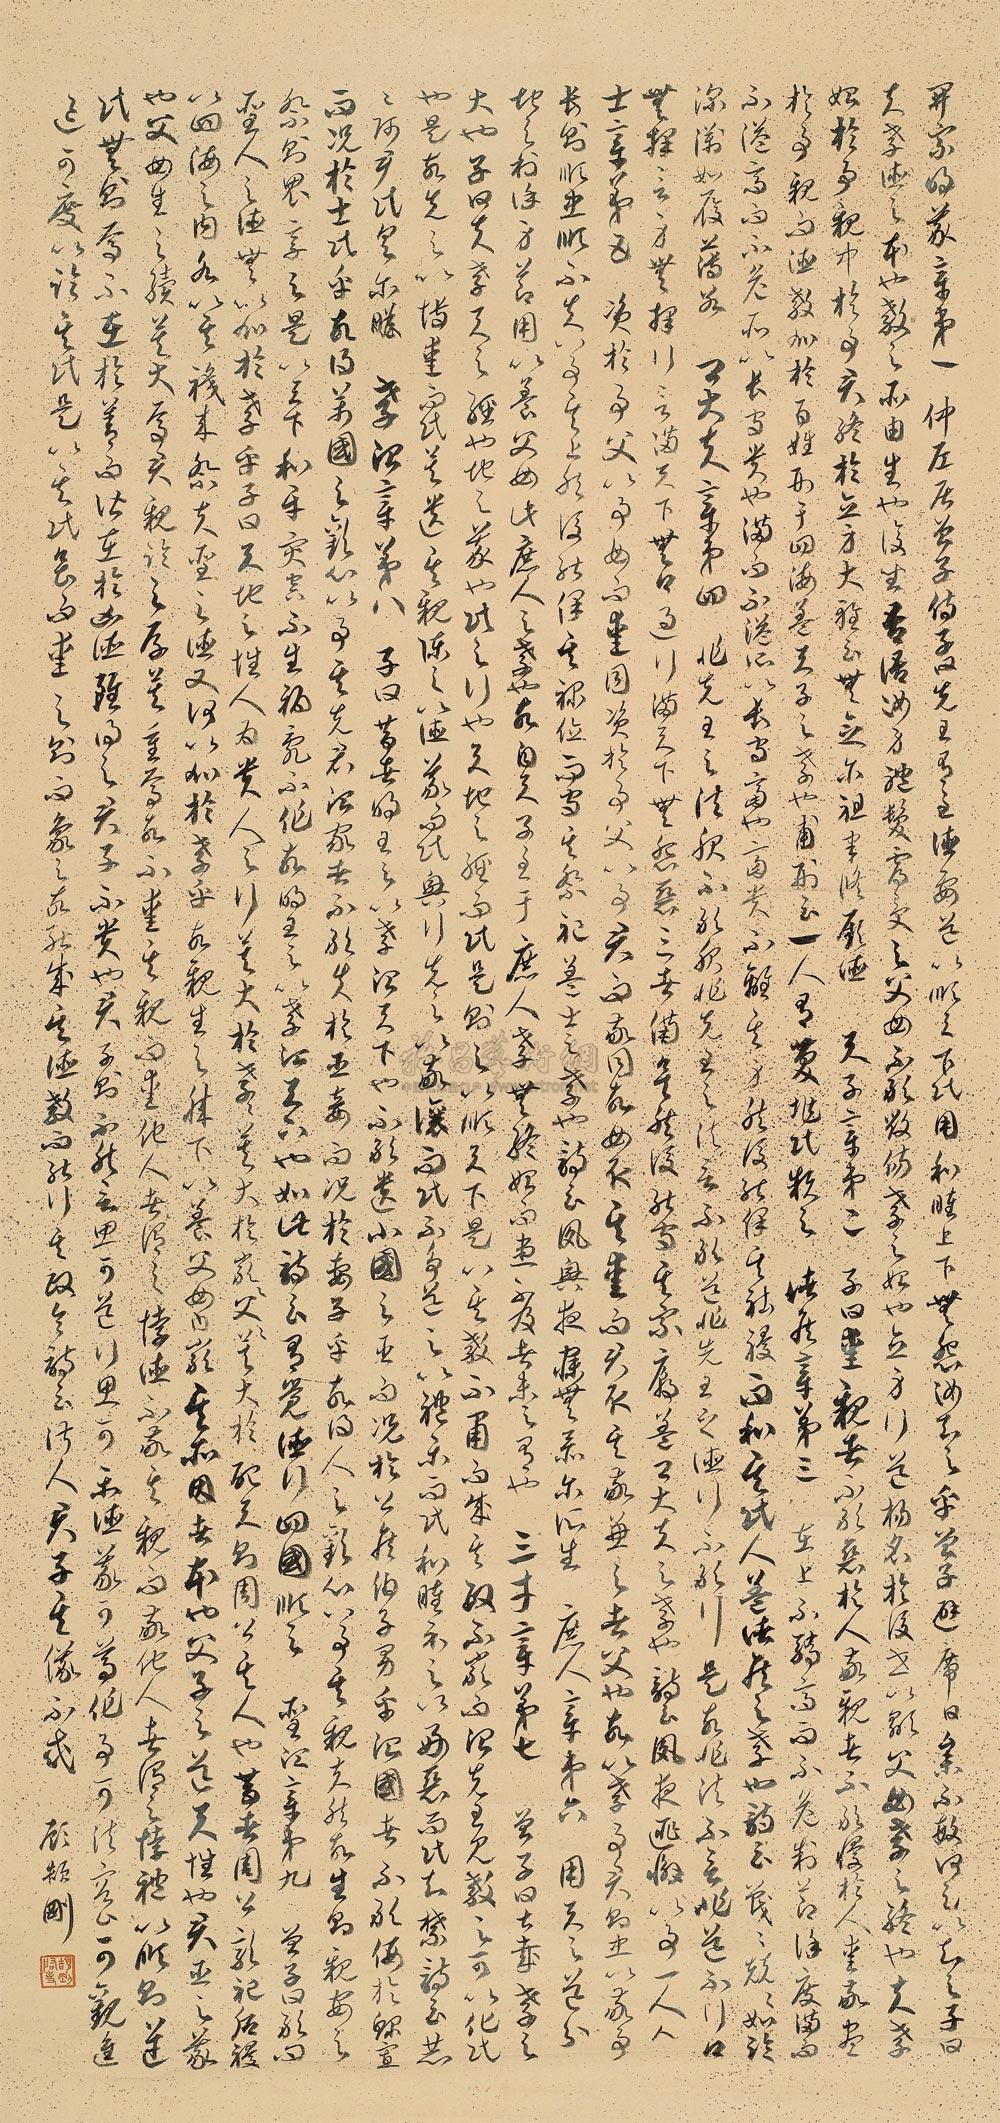 開宗明義章第一 仲尼居曾子侍子曰先王有至德要道以順天下民用和睦上下無怨汝知之乎曾子避席曰參不敏何足以知之子曰
夫孝德之本也教之所由生也復坐吾語汝身體髮膚受之父母不敢毀傷孝之始也立身行道揚名於後世以顯父母孝之終也夫孝
始於事親中於事君終於立身大雅云無念爾祖聿脩厥德 天子章第二 子曰愛親者不敢惡於人敬親者不敢慢於人愛敬盡
於事親而德教加於百姓刑于四海蓋天子之孝也甫刑云一人有慶兆民賴之 諸侯章第三 在上不驕高而不危制節謹度滿而
不溢高而不危所以長守貴也滿而不溢所以長守富也富貴不離其身然後能保其社稷而和其民人蓋諸侯之孝也詩云戰々兢々如臨
深淵如履薄冰 卿大夫章第四 非先王之法服不敢服非先王之法言不敢道非先王之德行不敢行是故非法不言非道不行口
無擇言身無擇行言滿天下無口過行滿天下無怨惡三者備矣然後能守其宗廟蓋卿大夫之孝也詩云夙夜匪懈以事一人
士章第五 資於事父以事母而愛同資於事父以事君而敬同故母取其愛而君取其敬兼之者父也故以孝事君則忠以敬事
長則順忠順不失以事其上然後能保其祿位而守其祭祀蓋士之孝也詩云夙興夜寐無忝爾所生 庶人章第六 用天之道分
地之利謹身節用以養父母此庶人之孝也故自天子至于庶人孝無終始而患不及者未之有也 三才章第七 曾子曰甚哉孝之
大也子曰夫孝天之經也地之義也民之行也天地之經而民是則之以順天下是以其教不肅而成其政不嚴而治先王見教之可以化民
也是故先之以博愛而民莫遺其親陳之以德義而民興行先之以敬讓而民不爭導之以禮樂而民和睦示之以好惡而民知禁詩云赫
々師尹民具爾瞻 孝治章第八 子曰昔者明王之以孝治天下也不敢遺小國之臣而況於公侯伯子男乎治國者不敢侮於鰥寡
而況於士民乎故得萬國之歡心以事其先君治家者不敢失於臣妾而況於妻子乎故得人之歡心以事其親夫然故生則親安之
祭則鬼享之是以天下和平災害不生禍亂不作故明王之以孝治天下也如此詩云有覺德行四國順之 聖治章第九 曾子曰敢問
聖人之德無以加於孝乎子曰天地之性人為貴人之行莫大於孝々莫大於嚴父々莫大於配天則周公其人也昔者周公郊祀后稷
以四海之內各以其職來祭夫聖之德又何以加於孝乎故親生之膝下以養父母日嚴其所因者本也父子之道天性也君臣之義
也父母生之續莫大焉君親臨之厚莫重焉故不愛其親而愛他人者謂之悖德不敬其親而敬他人者謂之悖禮以順則逆
民無則焉不在於善而皆在於凶德雖得之君子不貴也君子則不然言思可道行思可樂德義可尊作事可法容止可觀進
退可度以臨其民是以其民畏而愛之則而象之故能成其德教而能行其政令詩云淑人君子其儀不忒 顧頡剛